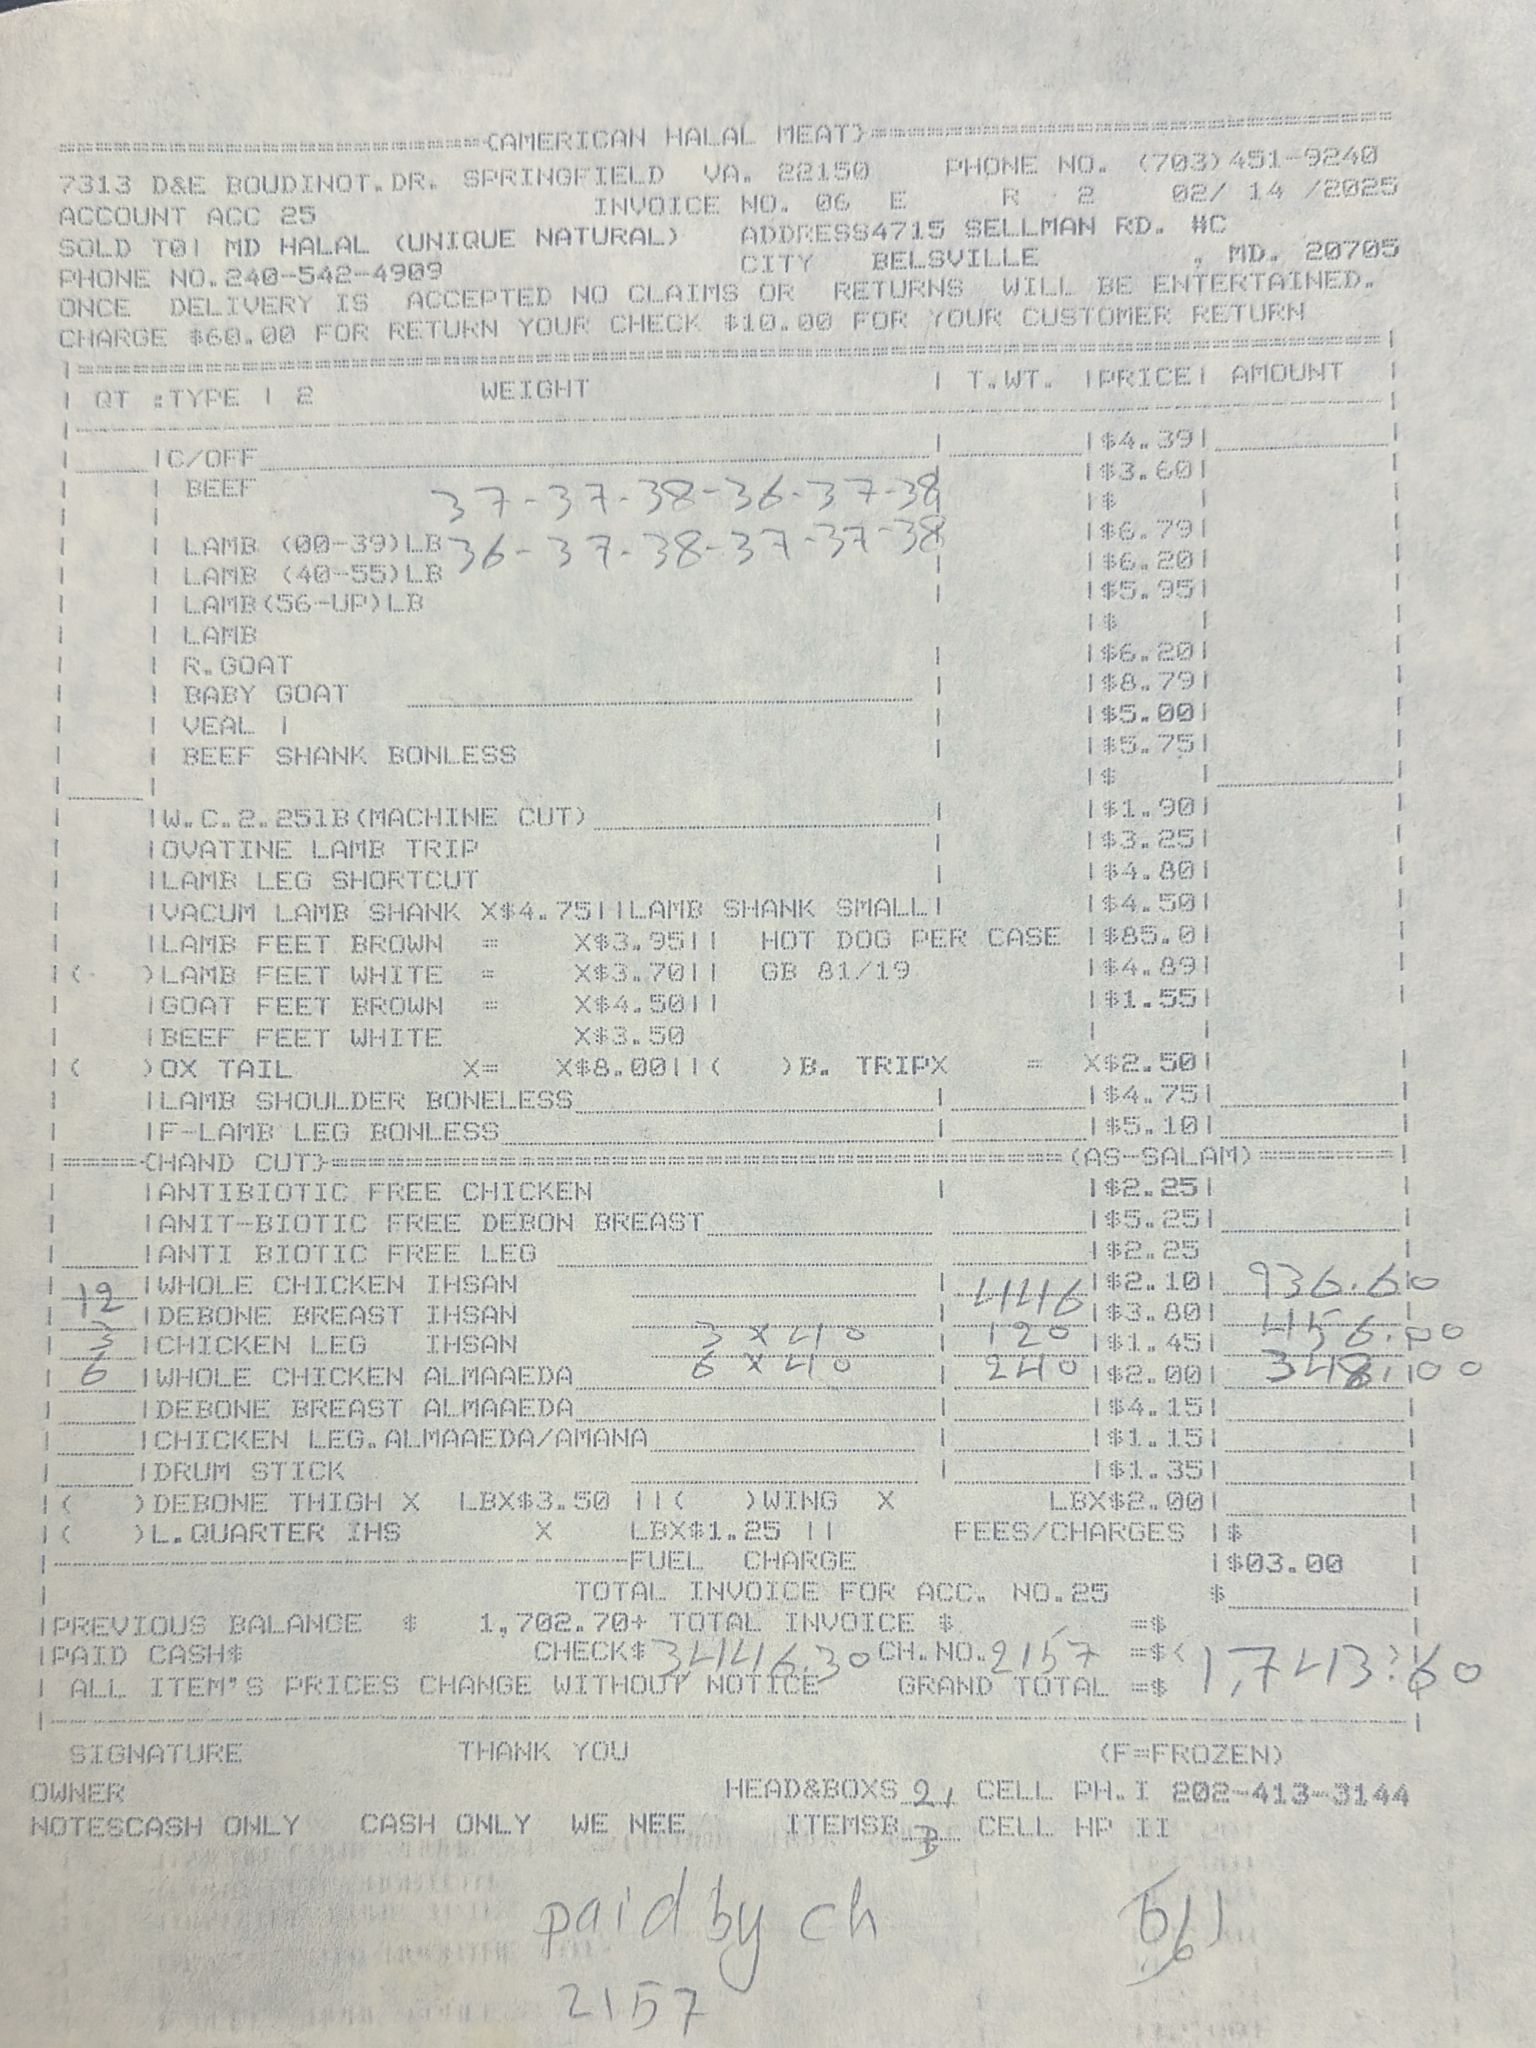 =====================(AMERICAN HALAL MEAT)=====================
7313 D&E BOUDINOT.DR. SPRINGFIELD VA. 22150 PHONE NO. (703)451-9240
ACCOUNT ACC 25 INVOICE NO. 06 E R 2 02/ 14 /2025
SOLD TO| MD HALAL (UNIQUE NATURAL) ADDRESS4715 SELLMAN RD. #C
PHONE NO.240-542-4909 CITY BELSVILLE , MD. 20705
ONCE DELIVERY IS ACCEPTED NO CLAIMS OR RETURNS WILL BE ENTERTAINED.
CHARGE $60.00 FOR RETURN YOUR CHECK $10.00 FOR YOUR CUSTOMER RETURN
| QT :TYPE | 2 WEIGHT | T.WT. |PRICE| AMOUNT |
|C/OFF |$4.39|
| BEEF |$3.60|
37-37-38-36-37-38 |$ |
| LAMB (00-39)LB 36-37-38-37-37-38 |$6.79|
| LAMB (40-55)LB |$6.20|
| LAMB(56-UP)LB |$5.95|
| LAMB |$ |
| R.GOAT |$6.20|
| BABY GOAT |$8.79|
| VEAL | |$5.00|
| BEEF SHANK BONLESS |$5.75|
|$ |
|W.C.2.25lB(MACHINE CUT) |$1.90|
|OVATINE LAMB TRIP |$3.25|
|LAMB LEG SHORTCUT |$4.80|
|VACUM LAMB SHANK X$4.75||LAMB SHANK SMALL| |$4.50|
|LAMB FEET BROWN = X$3.95|| HOT DOG PER CASE |$85.0|
|( )LAMB FEET WHITE = X$3.70|| GB 81/19 |$4.89|
|GOAT FEET BROWN = X$4.50|| |$1.55|
|BEEF FEET WHITE X$3.50
|( )OX TAIL X= X$8.00||( )B. TRIPX = X$2.50|
|LAMB SHOULDER BONELESS |$4.75|
|F-LAMB LEG BONLESS |$5.10|
|=====(HAND CUT)=====(AS-SALAM)========|
|ANTIBIOTIC FREE CHICKEN |$2.25|
|ANIT-BIOTIC FREE DEBON BREAST |$5.25|
|ANTI BIOTIC FREE LEG |$2.25
12 |WHOLE CHICKEN IHSAN 446 |$2.10| 936.60
3 |DEBONE BREAST IHSAN 3 x 40 120 |$3.80| 456.00
6 |CHICKEN LEG IHSAN 6 x 40 240 |$1.45| 348.00
|WHOLE CHICKEN ALMAAEDA |$2.00|
|DEBONE BREAST ALMAAEDA |$4.15|
|CHICKEN LEG.ALMAAEDA/AMANA |$1.15|
|DRUM STICK |$1.35|
|( )DEBONE THIGH X LBX$3.50 ||( )WING X LBX$2.00|
|( )L.QUARTER IHS X LBX$1.25 || FEES/CHARGES |$
FUEL CHARGE |$03.00
TOTAL INVOICE FOR ACC. NO.25 $
|PREVIOUS BALANCE $ 1,702.70+ TOTAL INVOICE $ =$
|PAID CASH$ CHECK$ 3446.30 CH.NO. 2157 =$<
| ALL ITEM'S PRICES CHANGE WITHOUT NOTICE GRAND TOTAL =$ 1,743.60
SIGNATURE THANK YOU (F=FROZEN)
OWNER HEAD&BOXS 21 CELL PH.I 202-413-3144
NOTESCASH ONLY CASH ONLY WE NEE ITEMSB 3 CELL HP II
paid by ch
2157